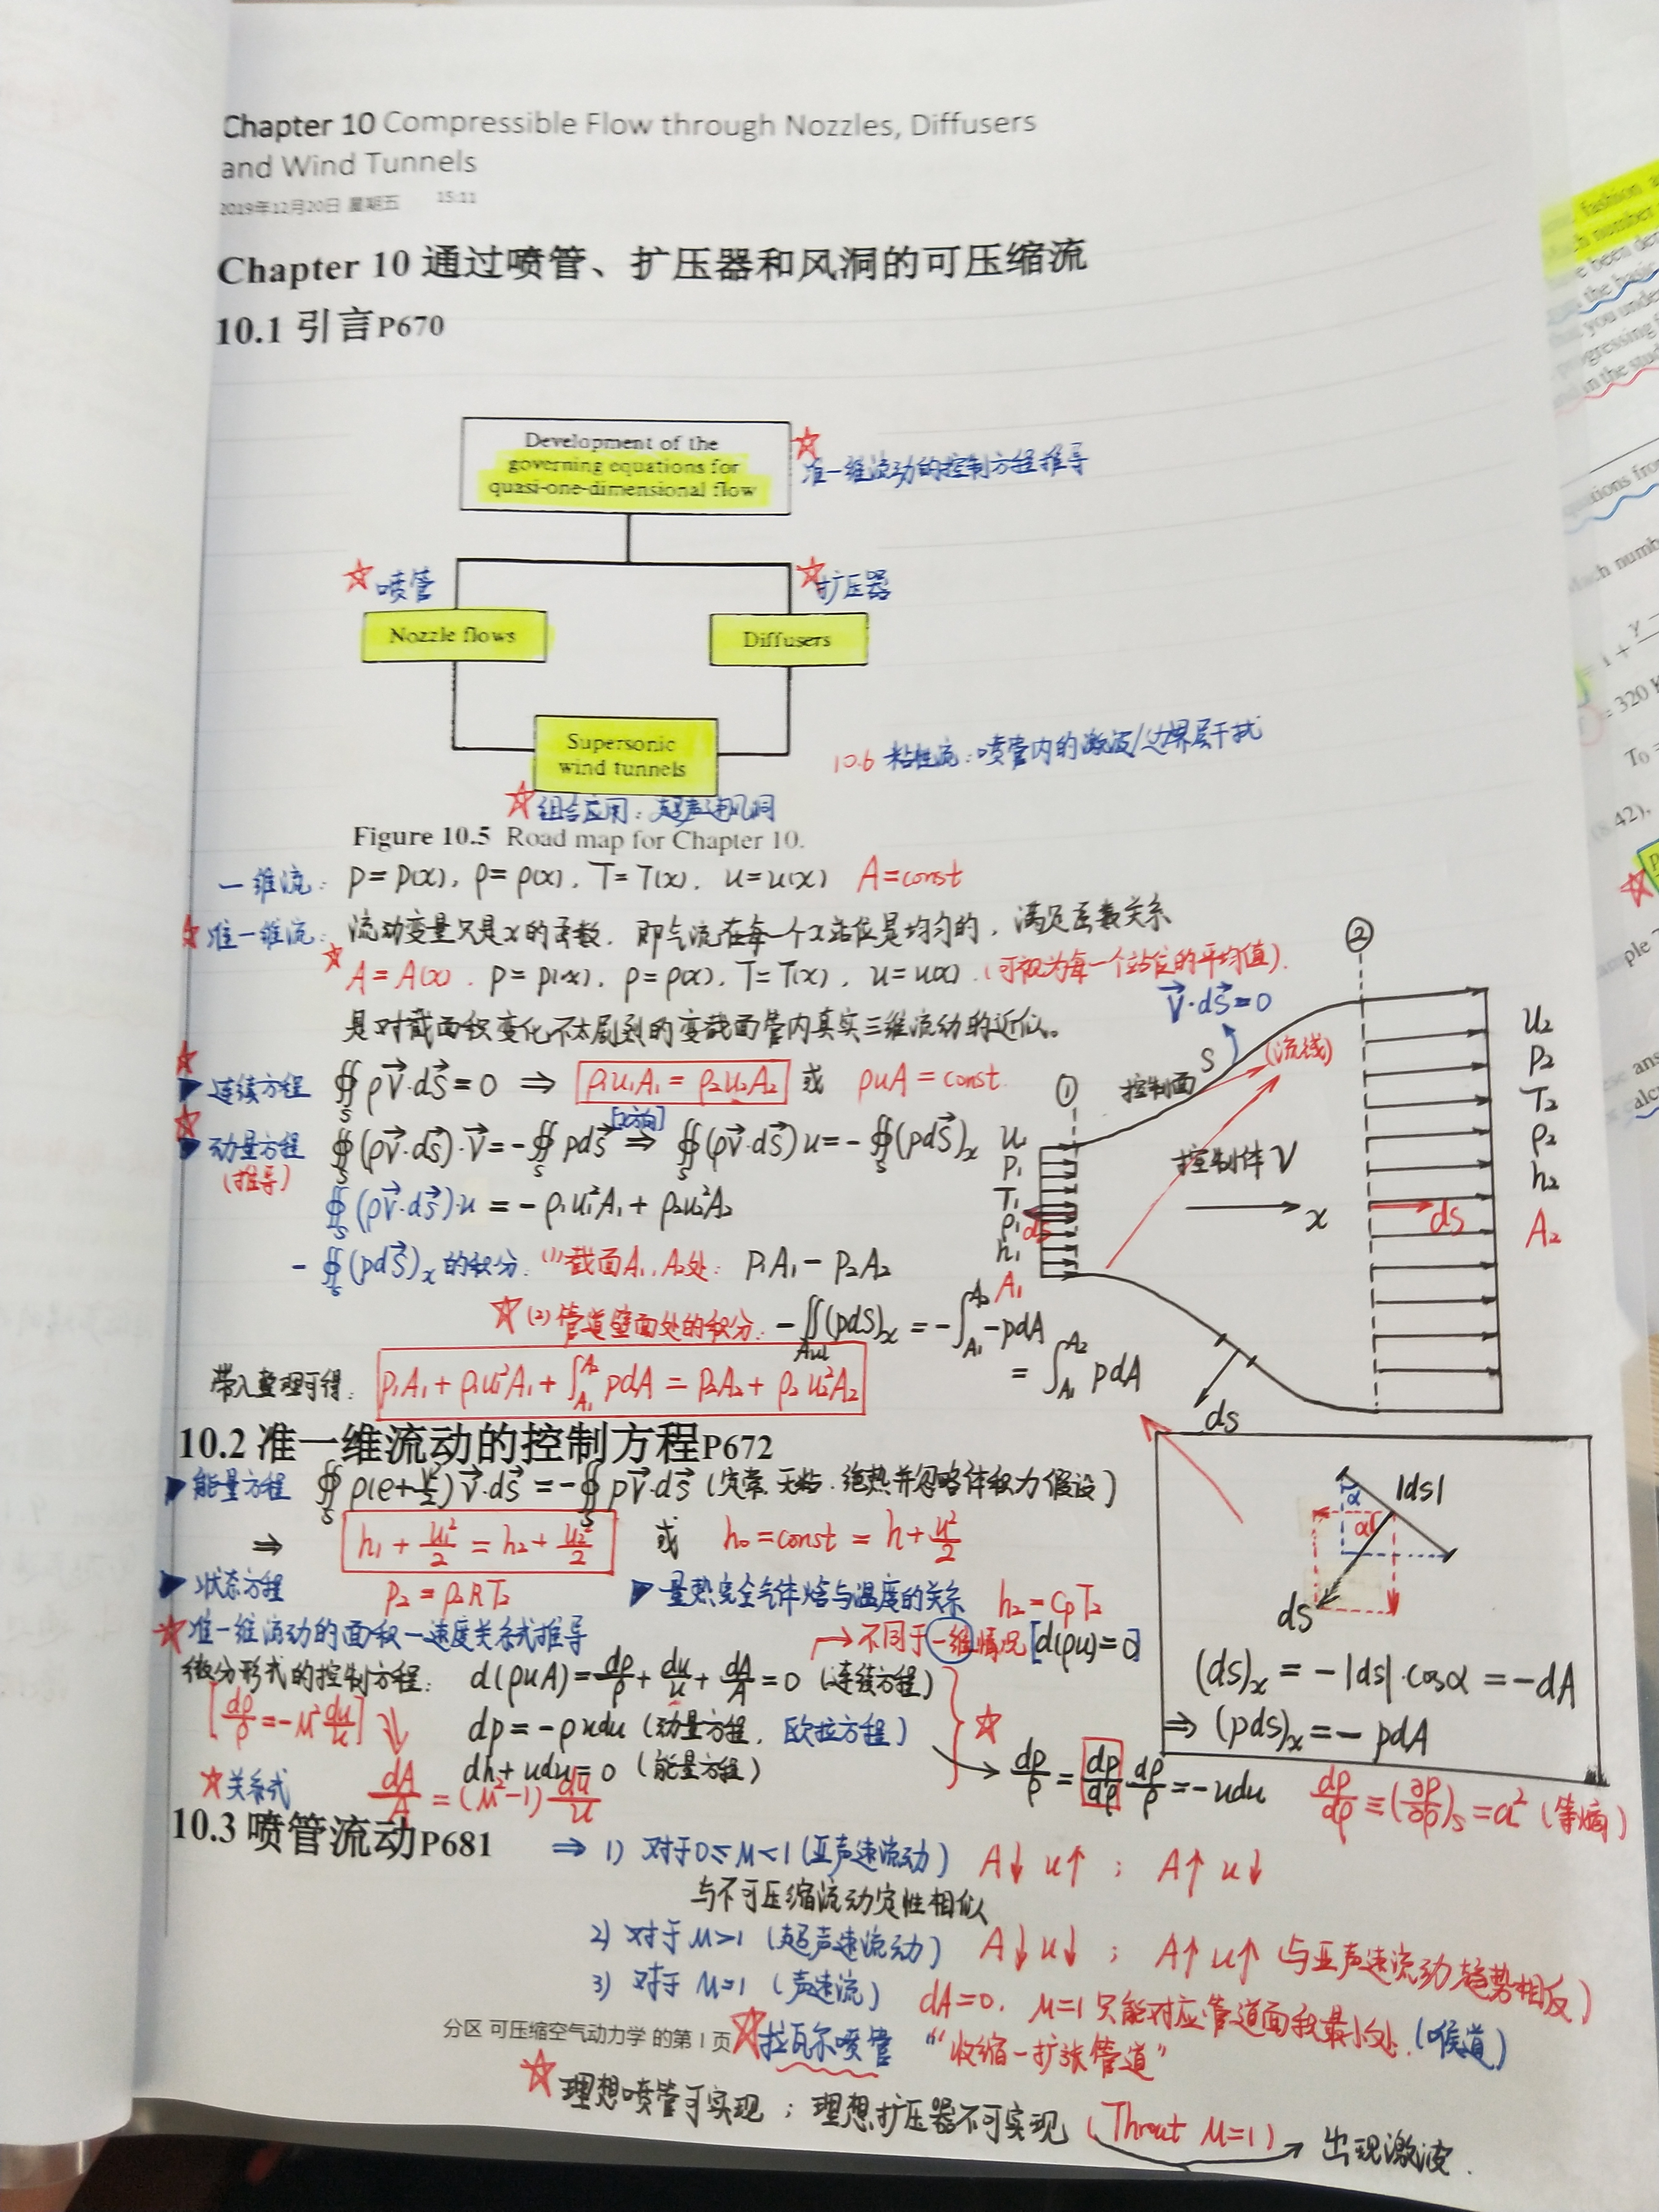 Chapter 10 Compressible Flow through Nozzles, Diffusers
and Wind Tunnels
2019年12月20日 星期五 15:11
Chapter 10 通过喷管、扩压器和风洞的可压缩流
10.1 引言P670
Development of the
governing equations for
quasi-one-dimensional flow
☆ 准一维流动的控制方程推导
☆ 喷管
☆ 扩压器
Nozzle flows
Diffusers
Supersonic
wind tunnels
10.6 粘性流：喷管内的激波/边界层干扰
☆ 组合应用：超声速风洞
Figure 10.5 Road map for Chapter 10.
一维流： p=p(x), ρ=ρ(x), T=T(x), u=u(x) A=const
☆ 准一维流： 流动变量只是x的函数，即气流在每一个x站位是均匀的，满足函数关系
☆ A=A(x), p=p(x), ρ=ρ(x), T=T(x), u=u(x). (可视为每一个站位的平均值).
是对截面积变化不太剧烈的变截面管内真实三维流动的近似。
V·dS=0
S (流线)
控制面
控制体V
x
①
u₁
p₁
T₁
ρ₁
h₁
A₁
dS
②
u₂
p₂
T₂
ρ₂
h₂
A₂
dS
dS
☆ ▶ 连续方程 ∯ₛ ρV·dS=0 ⇒ ρ₁u₁A₁=ρ₂u₂A₂ 或 ρuA=const
☆ ▶ 动量方程 ∯ₛ(ρV·dS)·V=-∯ₛ pdS ⇒ [x方向] ∯ₛ(ρV·dS)u=-∯ₛ(pdS)ₓ
(推导)
∯ₛ(ρV·dS)·u=-ρ₁u₁²A₁+ρ₂u₂²A₂
-∯ₛ(pdS)ₓ的积分. (1)截面A₁、A₂处: p₁A₁-p₂A₂
☆ (2)管道壁面处的积分: -∬(pdS)ₓ=-∫_{A₁}^{A₂}-pdA
=∫_{A₁}^{A₂}pdA
带入整理可得: p₁A₁+ρ₁u₁²A₁+∫_{A₁}^{A₂}pdA=p₂A₂+ρ₂u₂²A₂
10.2 准一维流动的控制方程P672
▶ 能量方程 ∯ₛ ρ(e+V²/2)V·dS=-∯ₛ pV·dS (定常、无粘、绝热并忽略体积力假设)
⇒ h₁+u₁²/2=h₂+u₂²/2 或 h₀=const=h+u²/2
▶ 状态方程 p₂=ρ₂RT₂ ▶ 量热完全气体焓与温度的关系 h₂=cₚT₂
☆ 准一维流动的面积-速度关系式推导
→不同于一维情况[d(ρu)=0]
微分形式的控制方程: d(ρuA)=dρ/ρ+du/u+dA/A=0 (连续方程)
[dρ/ρ=-M²du/u]
dp=-ρudu (动量方程, 欧拉方程)
dh+udu=0 (能量方程)
☆
→ dp/ρ=dp/dρ dρ/ρ=-udu dp/dρ≡(∂p/∂ρ)ₛ=a² (等熵)
☆ 关系式 dA/A=(M²-1)du/u
α
|dS|
α
dS
(dS)ₓ=-|dS|·cosα=-dA
⇒ (pdS)ₓ=-pdA
10.3 喷管流动P681
⇒ 1) 对于0≤M<1(亚声速流动) A↓ u↑ ; A↑ u↓
与不可压缩流动定性相似
2) 对于M>1 (超声速流动) A↓ u↓ ; A↑ u↑ (与亚声速流动趋势相反)
3) 对于 M=1 (声速流) dA=0, M=1只能对应管道面积最小处. (喉道)
分区 可压缩空气动力学 的第 1 页
☆ 拉瓦尔喷管 “收缩-扩张管道”
☆ 理想喷管可实现; 理想扩压器不可实现 (Throat M=1) → 出现激波.